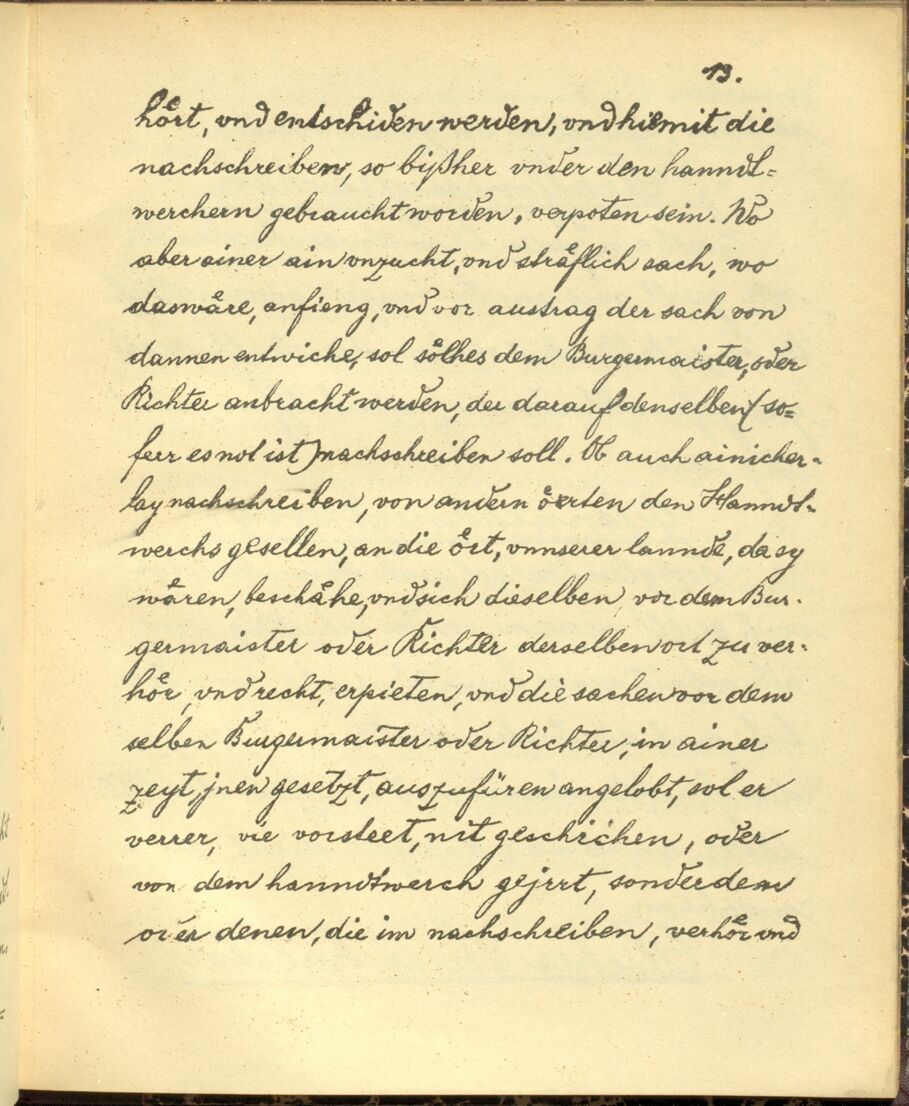 13.
hört, vnd entschiden werden, vnd hiemit die
nachschreiben, so bißher vnder den hanndt=
werchern gebraucht worden, verpoten sein. Wo
aber ainer ain vnzucht, vnd sträflich sach, wo
das wäre, anfieng, vnd vor austrag der sach von
dannen entwiche, sol sölhes dem Burgermaister, oder
Richter anbracht werden, der darauf denselben (so=
ferr es not ist) nachschreiben soll. Ob auch ainicher=
lay nachschreiben, von andern örten den Hanndt=
werchs gesellen, an die ört, vnnserer lannde, da sy
wären, beschähe, vnd sich dieselben vor dem Bur=
germaister oder Richter derselben ort zu ver=
hör, vnd recht, erpieten, vnd die sachen vor dem
selben Burgermaister oder Richter, in ainer
zeyt, jnen gesetzt, auszufüren angelobt, sol er
verrer, wie vorsteet, nit geschrichen, oder
von dem hanndtwerch gejrrt, sonder dem
oder denen, die im nachschreiben, verhör vnd